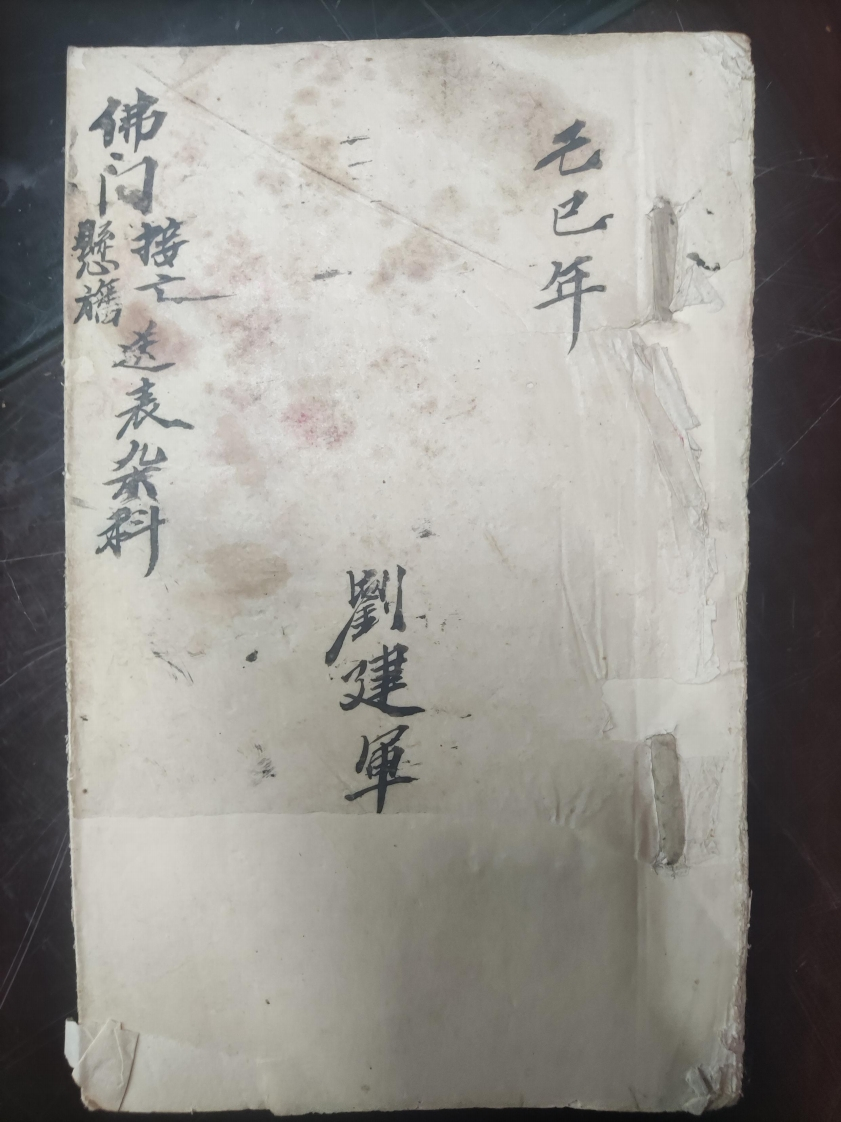 乙巳年
劉建軍
佛门
接亡
懸旛
送表杂科